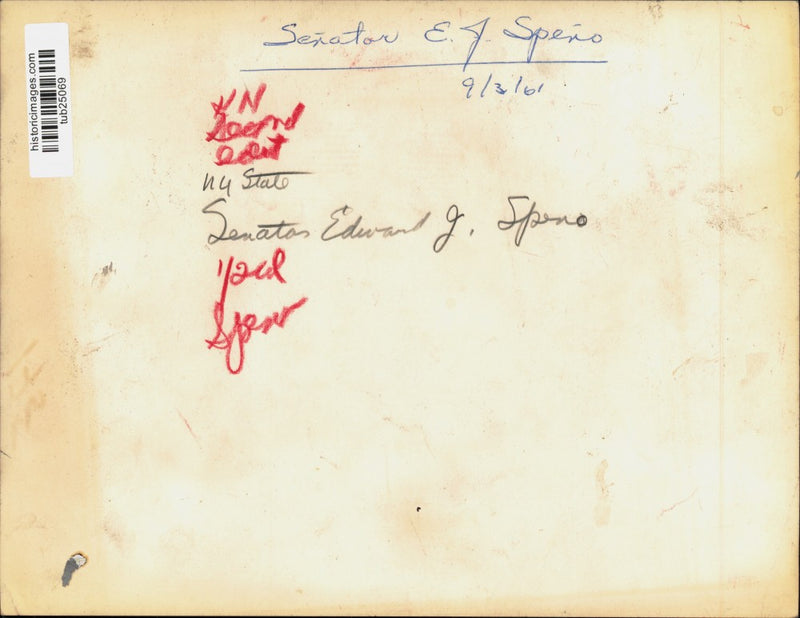 historicimages.com
tub25069
Señator E. J. Speño
9/3/61
Second
NY State
Senator Edward J. Speno
1/2 col
Speno